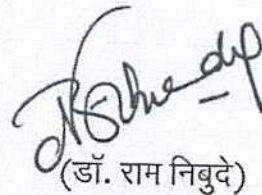 (डॉ. राम निबुदे)